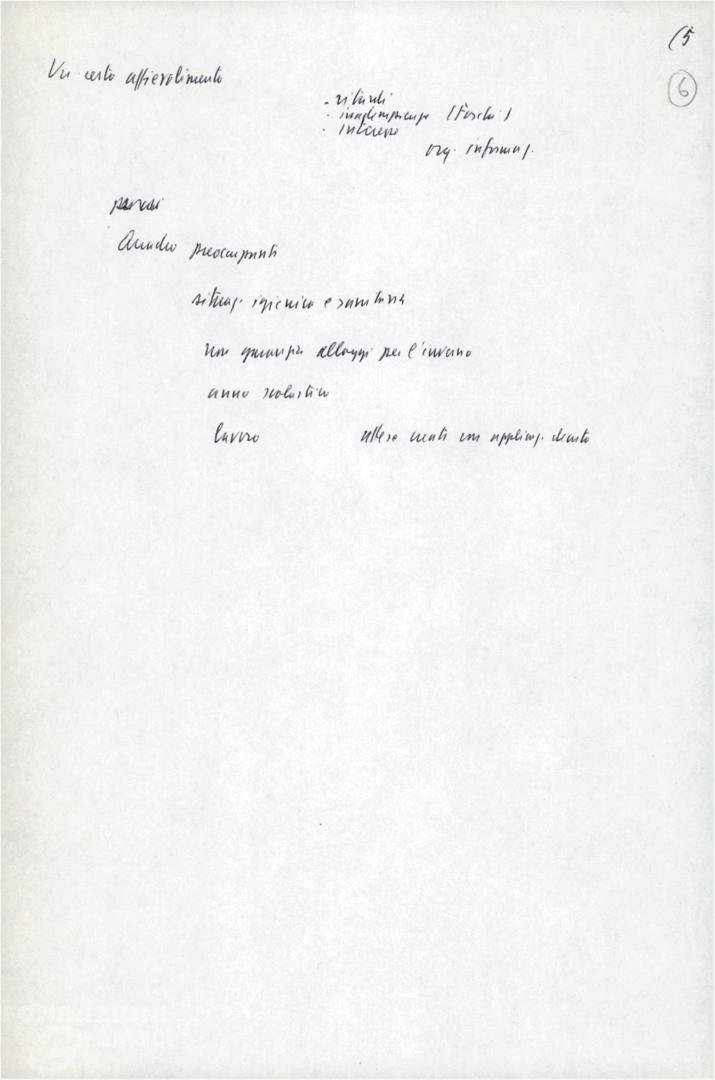 (5
6
Un certo affievolimento
- ritardi
- inadempienze (Foschi)
- interesse
org. informaz.
Quadro preoccupanti
situaz. igienica e sanitaria
non garanzia alloggi per l'inverno
anno scolastico
lavoro attese creati con applicaz. decreto